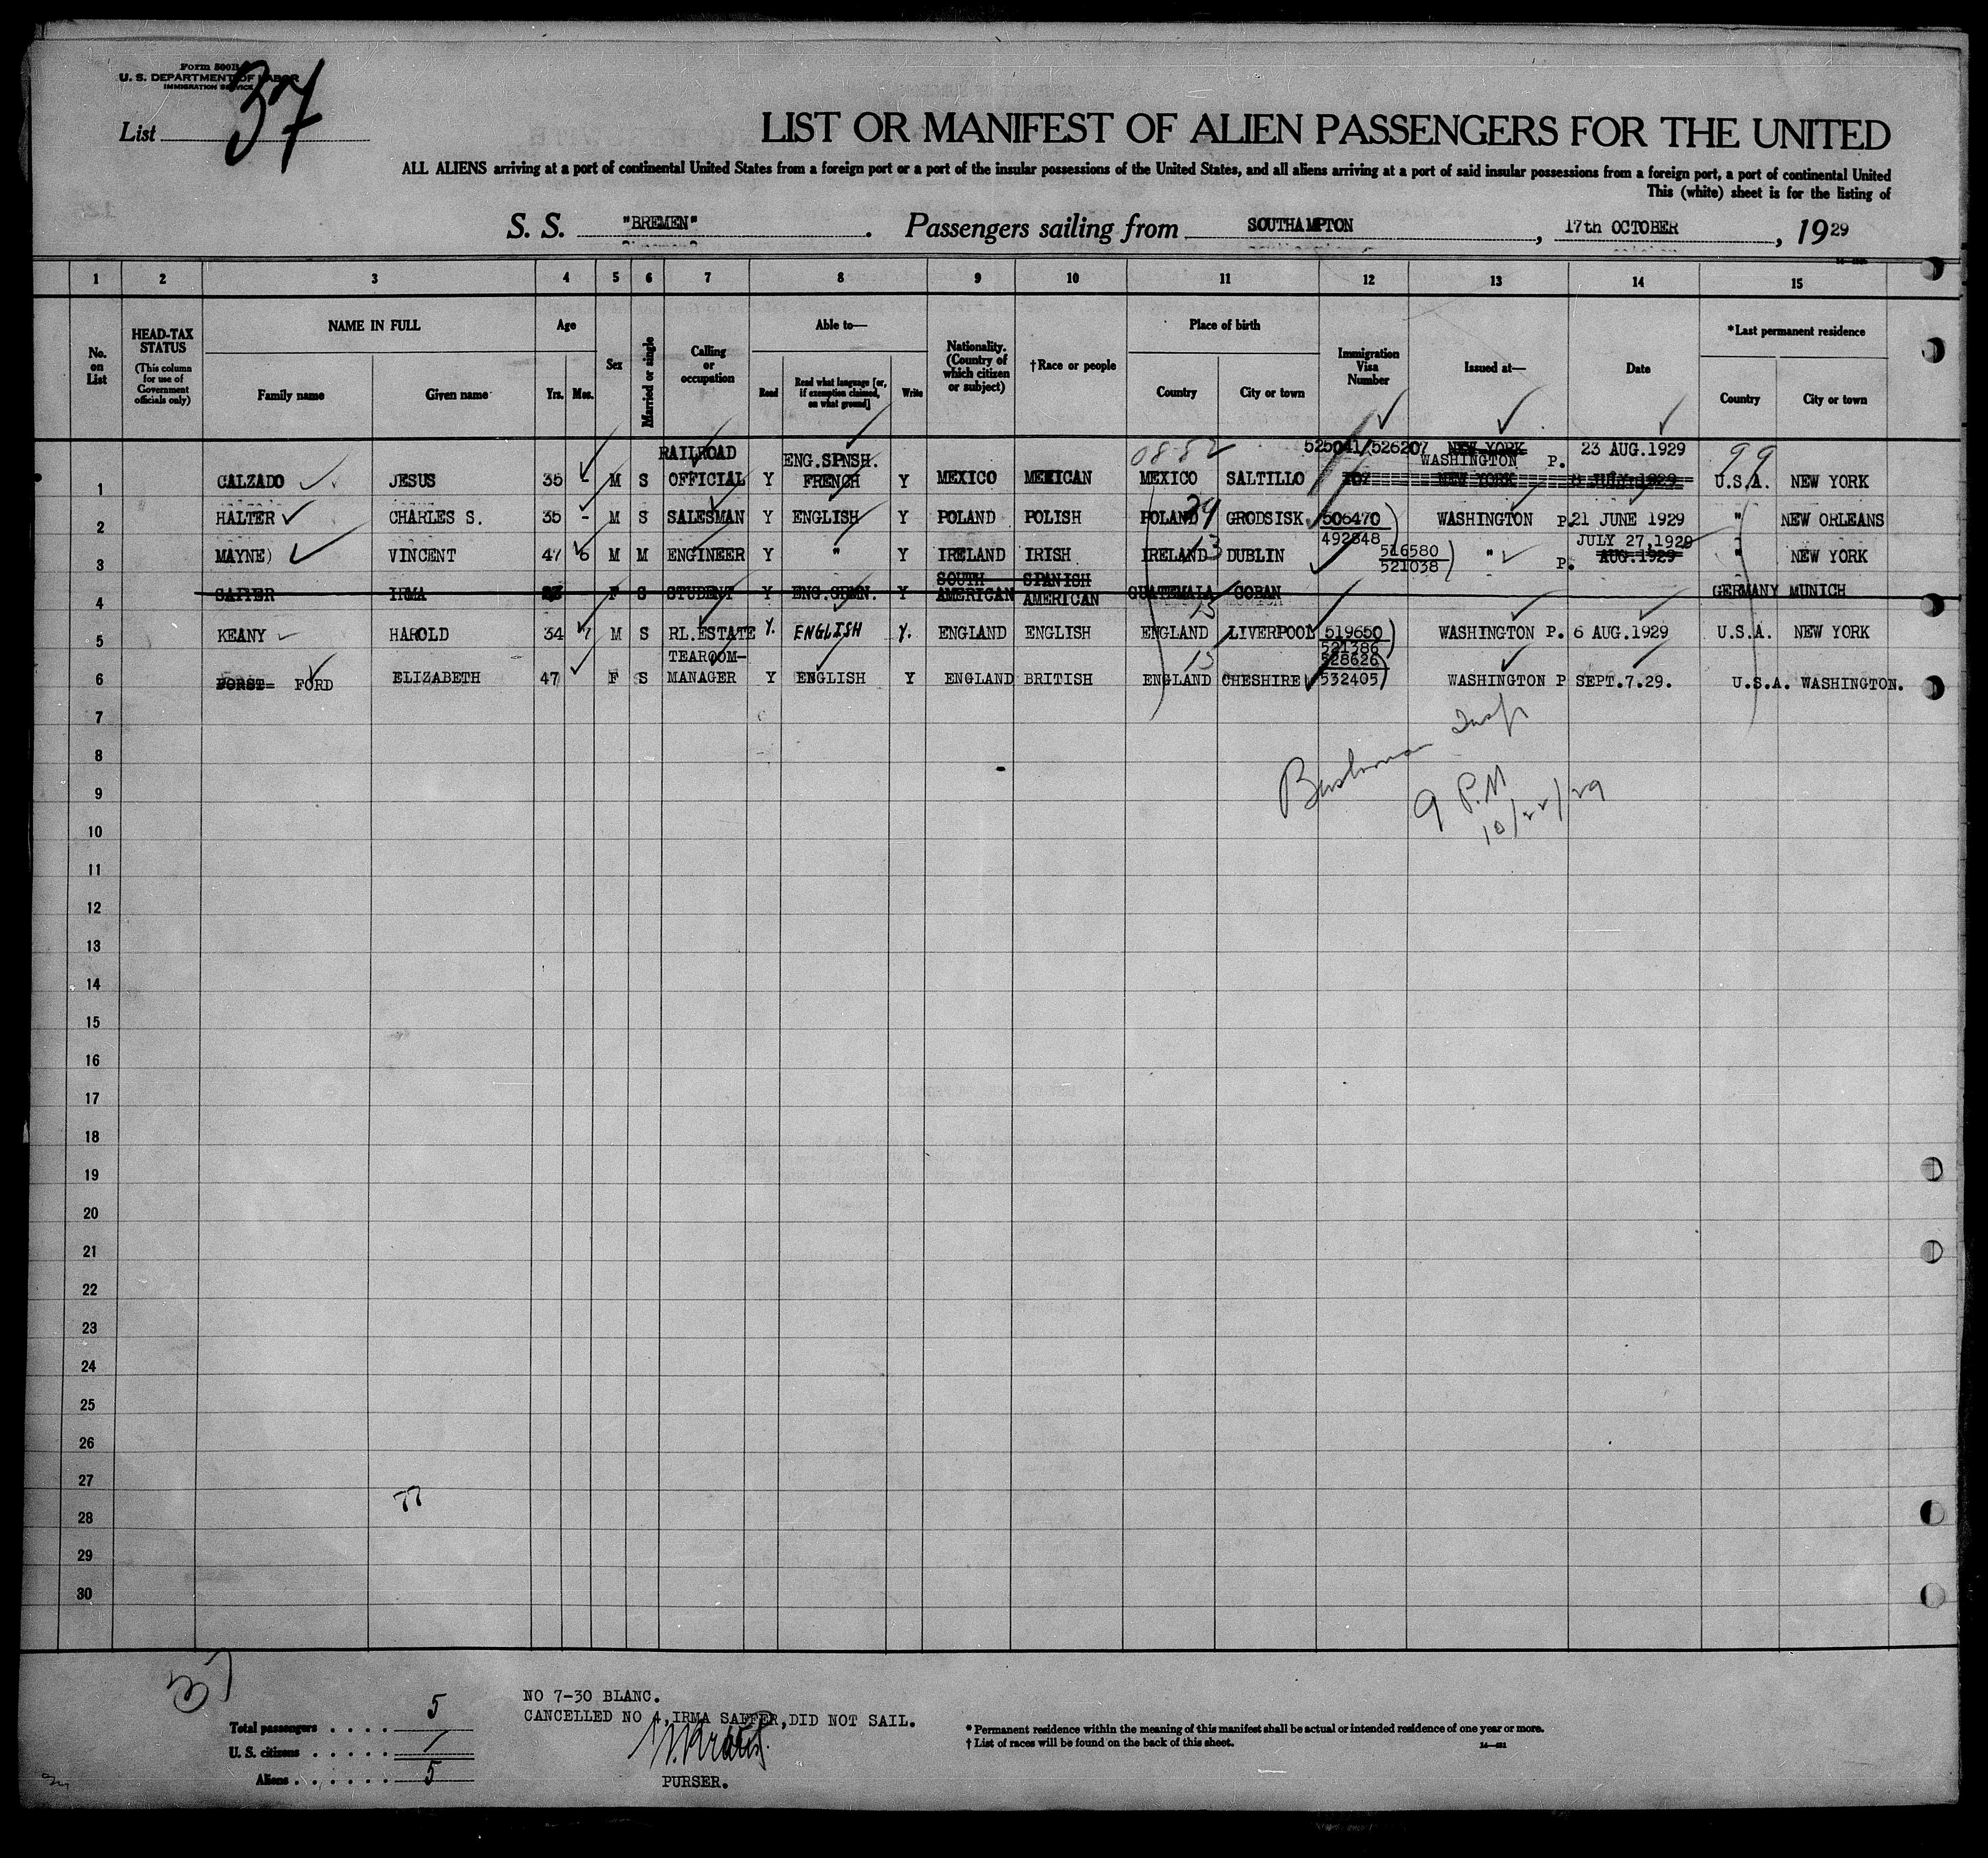 Form 500B
U. S. DEPARTMENT OF LABOR
IMMIGRATION SERVICE
List 37
LIST OR MANIFEST OF ALIEN PASSENGERS FOR THE UNITED
ALL ALIENS arriving at a port of continental United States from a foreign port or a port of the insular possessions of the United States, and all aliens arriving at a port of said insular possessions from a foreign port, a port of continental United
This (white) sheet is for the listing of
S. S. "BREMEN". Passengers sailing from SOUTHAMPTON, 17th OCTOBER, 1929
1 2 3 4 5 6 7 8 9 10 11 12 13 14 15
No. on List
HEAD-TAX STATUS (This column for use of Government officials only)
NAME IN FULL Family name Given name
Age Yrs. Mos.
Sex
Married or single
Calling or occupation
Able to— Read Read what language [or, if exemption claimed, on what ground] Write
Nationality. (Country of which citizen or subject)
†Race or people
Place of birth Country City or town
Immigration Visa Number
Issued at—
Date
*Last permanent residence Country City or town
RAILROAD ENG.SPNSH. 0882 525041/526207 NEW YORK 23 AUG.1929 99
WASHINGTON P.
1 CALZADO JESUS 35 - M S OFFICIAL Y FRENCH Y MEXICO MEXICAN MEXICO SALTILLO 702 NEW YORK JULY 1929 U.S.A. NEW YORK
2 HALTER CHARLES S. 35 - M S SALESMAN Y ENGLISH Y POLAND POLISH POLAND 24 GRODSISK. 506470 WASHINGTON P. 21 JUNE 1929 " NEW ORLEANS
492848 JULY 27,1929
3 MAYNE) VINCENT 47 6 M M ENGINEER Y " Y IRELAND IRISH IRELAND 13 DUBLIN 516580 " P. AUG.1929 " NEW YORK
521038
SOUTH SPANISH
4 SAFFER IRMA F S STUDENT Y ENG.GRMN. Y AMERICAN AMERICAN GUATEMALA COBAN GERMANY MUNICH
13
5 KEANY HAROLD 34 7 M S RL.ESTATE Y. ENGLISH Y. ENGLAND ENGLISH ENGLAND LIVERPOOL 519650 WASHINGTON P. 6 AUG.1929 U.S.A. NEW YORK
521386
TEAROOM- 13 528626
6 FORST= FORD ELIZABETH 47 F S MANAGER Y ENGLISH Y ENGLAND BRITISH ENGLAND CHESHIRE 532405 WASHINGTON P SEPT.7.29. U.S.A. WASHINGTON.
7
Insp
8
Bushman
9
9 P.M
10
10/22/29
11
12
13
14
15
16
17
18
19
20
21
22
23
24
25
26
27
77
28
29
30
NO 7-30 BLANC.
CANCELLED NO 4,IRMA SAFFER,DID NOT SAIL.
PURSER.
Total passengers . . . . 5
U. S. citizens . . . . . /
Aliens . . . . . . 5
* Permanent residence within the meaning of this manifest shall be actual or intended residence of one year or more.
† List of races will be found on the back of this sheet.
14—421